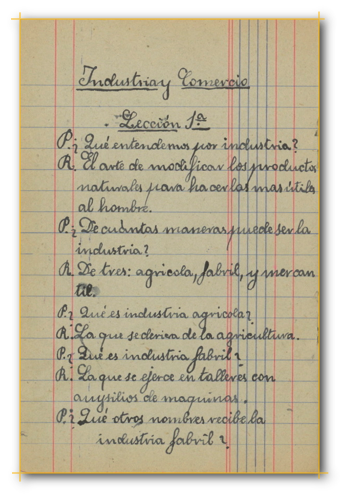 Industria y Comercio
Lección 1ª
P.¿ Qué entendemos por industria?
R. El arte de modificar los productos
naturales para hacerlos mas útiles
al hombre.
P.¿ De cuántas maneras puede ser la
industria?
R. De tres: agricola, fabril, y mercan
til.
P.¿ Qué es industria agricola?
R. La que se deriva de la agricultura.
P.¿ Qué es industria fabril?
R. La que se ejerce en talleres con
auxsilios de maquinas.
P.¿ Qué otros nombres recibe la
industria fabril?